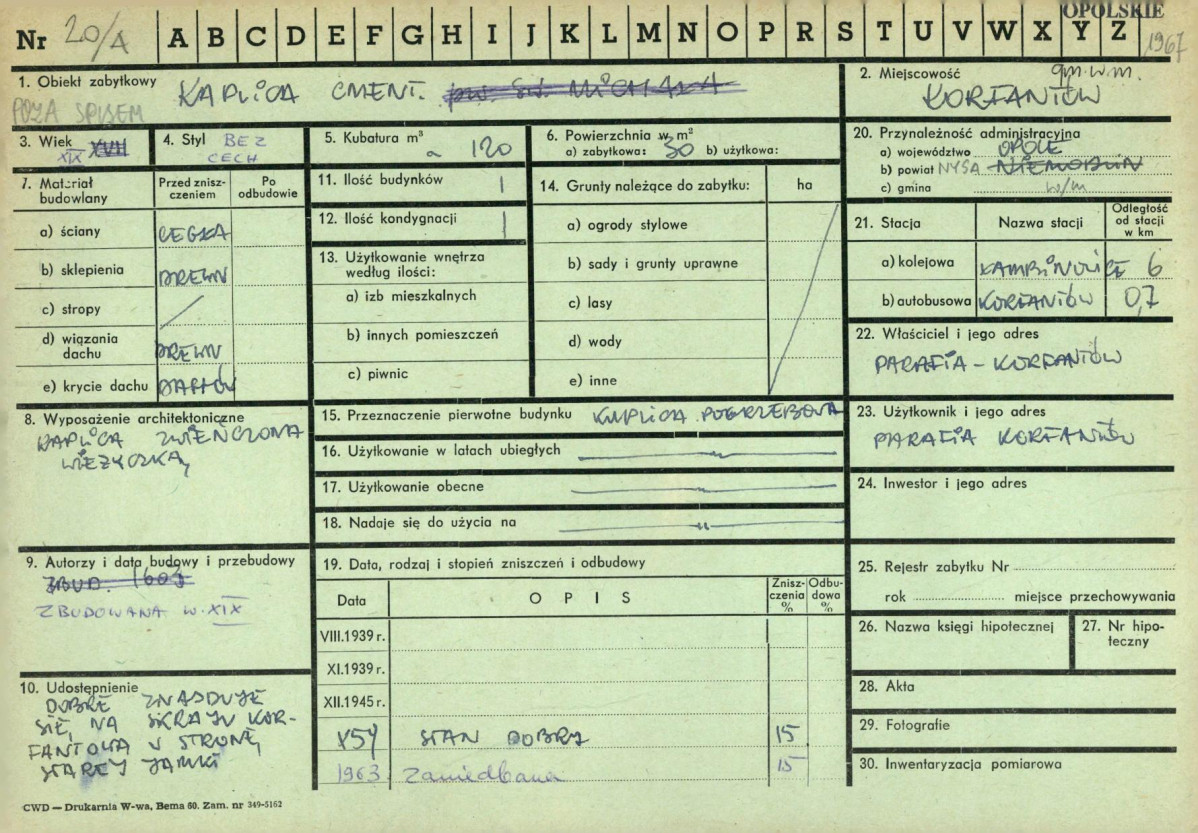 OPOLSKIE
Nr 20/A A B C D E F G H I J K L M N O P R S T U V W X Y Z 1967
1. Obiekt zabytkowy KAPLICA CMENT. pw. św. MICHAŁA
POZA SPISEM
2. Miejscowość gm.w.m.
KORFANTÓW
3. Wiek XVII
XIX
4. Styl BEZ
CECH
5. Kubatura m³
~ 120
6. Powierzchnia w m²
a) zabytkowa: 30 b) użytkowa:
20. Przynależność administracyjna
a) województwo OPOLE
b) powiat NYSA NIEMODLIN
c) gmina w/m
7. Materiał budowlany
Przed zniszczeniem
Po odbudowie
a) ściany CEGŁA
b) sklepienia DREWN
c) stropy
d) wiązania dachu DREWN
e) krycie dachu
11. Ilość budynków 1
12. Ilość kondygnacji 1
13. Użytkowanie wnętrza
według ilości:
a) izb mieszkalnych
b) innych pomieszczeń
c) piwnic
14. Grunty należące do zabytku: ha
a) ogrody stylowe
b) sady i grunty uprawne
c) lasy
d) wody
e) inne
21. Stacja Nazwa stacji Odległość od stacji w km
a) kolejowa 6
b) autobusowa KORFANTÓW 0,7
22. Właściciel i jego adres
PARAFIA - KORFANTÓW
8. Wyposażenie architektoniczne
KAPLICA ZWIEŃCZONA
WIEŻYCZKĄ
15. Przeznaczenie pierwotne budynku KAPLICA POGRZEBOWA
16. Użytkowanie w latach ubiegłych
17. Użytkowanie obecne
18. Nadaje się do użycia na
23. Użytkownik i jego adres
PARAFIA KORFANTÓW
24. Inwestor i jego adres
9. Autorzy i data budowy i przebudowy
ZBUD. 1603
ZBUDOWANA W. XIX
19. Data, rodzaj i stopień zniszczeń i odbudowy
Data OPIS Zniszczenia % Odbudowa %
VIII.1939 r.
XI.1939 r.
XII.1945 r.
X57 STAN DOBRY 15
1963 Zaniedbana 15
25. Rejestr zabytku Nr
rok miejsce przechowywania
26. Nazwa księgi hipotecznej
27. Nr hipoteczny
28. Akta
29. Fotografie
30. Inwentaryzacja pomiarowa
10. Udostępnienie
DOBRE ZNAJDUJE
SIĘ NA SKRAJU KOR-
FANTOWA W STRONĘ
STAREJ JAMKI
CWD — Drukarnia W-wa, Bema 60. Zam. nr 349-5162